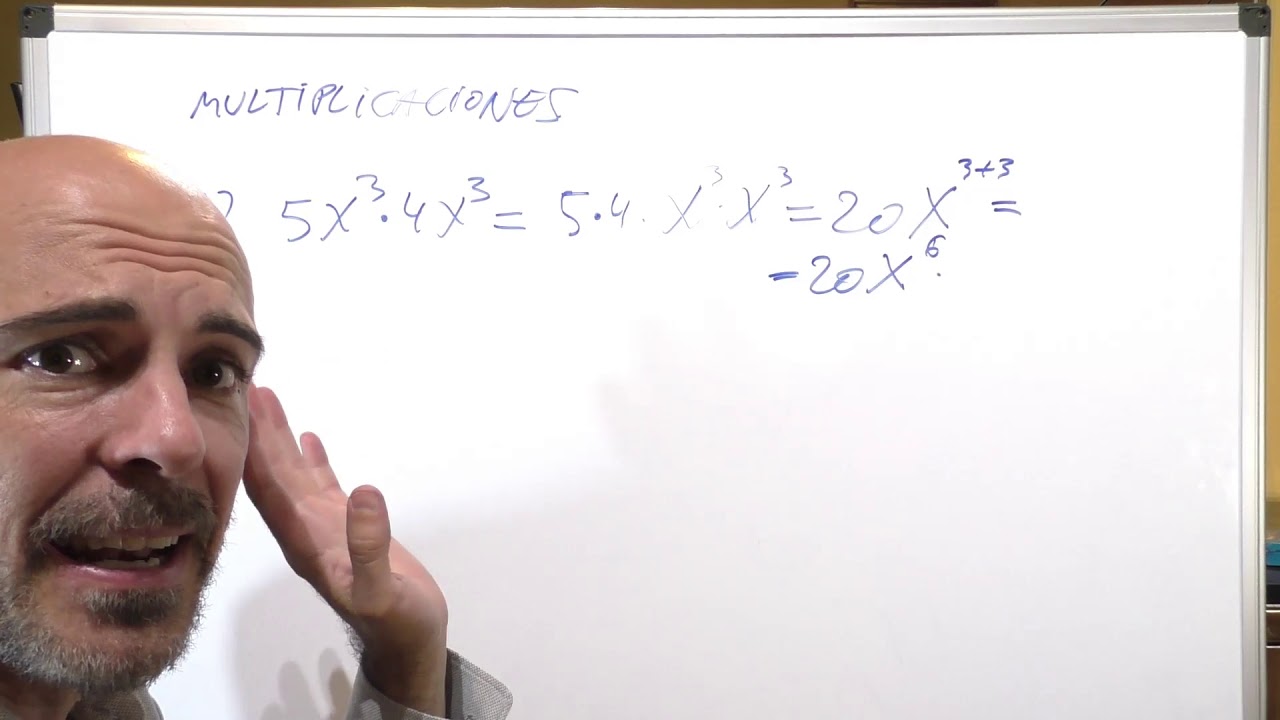 MULTIPLICACIONES
5x³·4x³= 5·4·x³·x³=20x³⁺³=
=20x⁶.